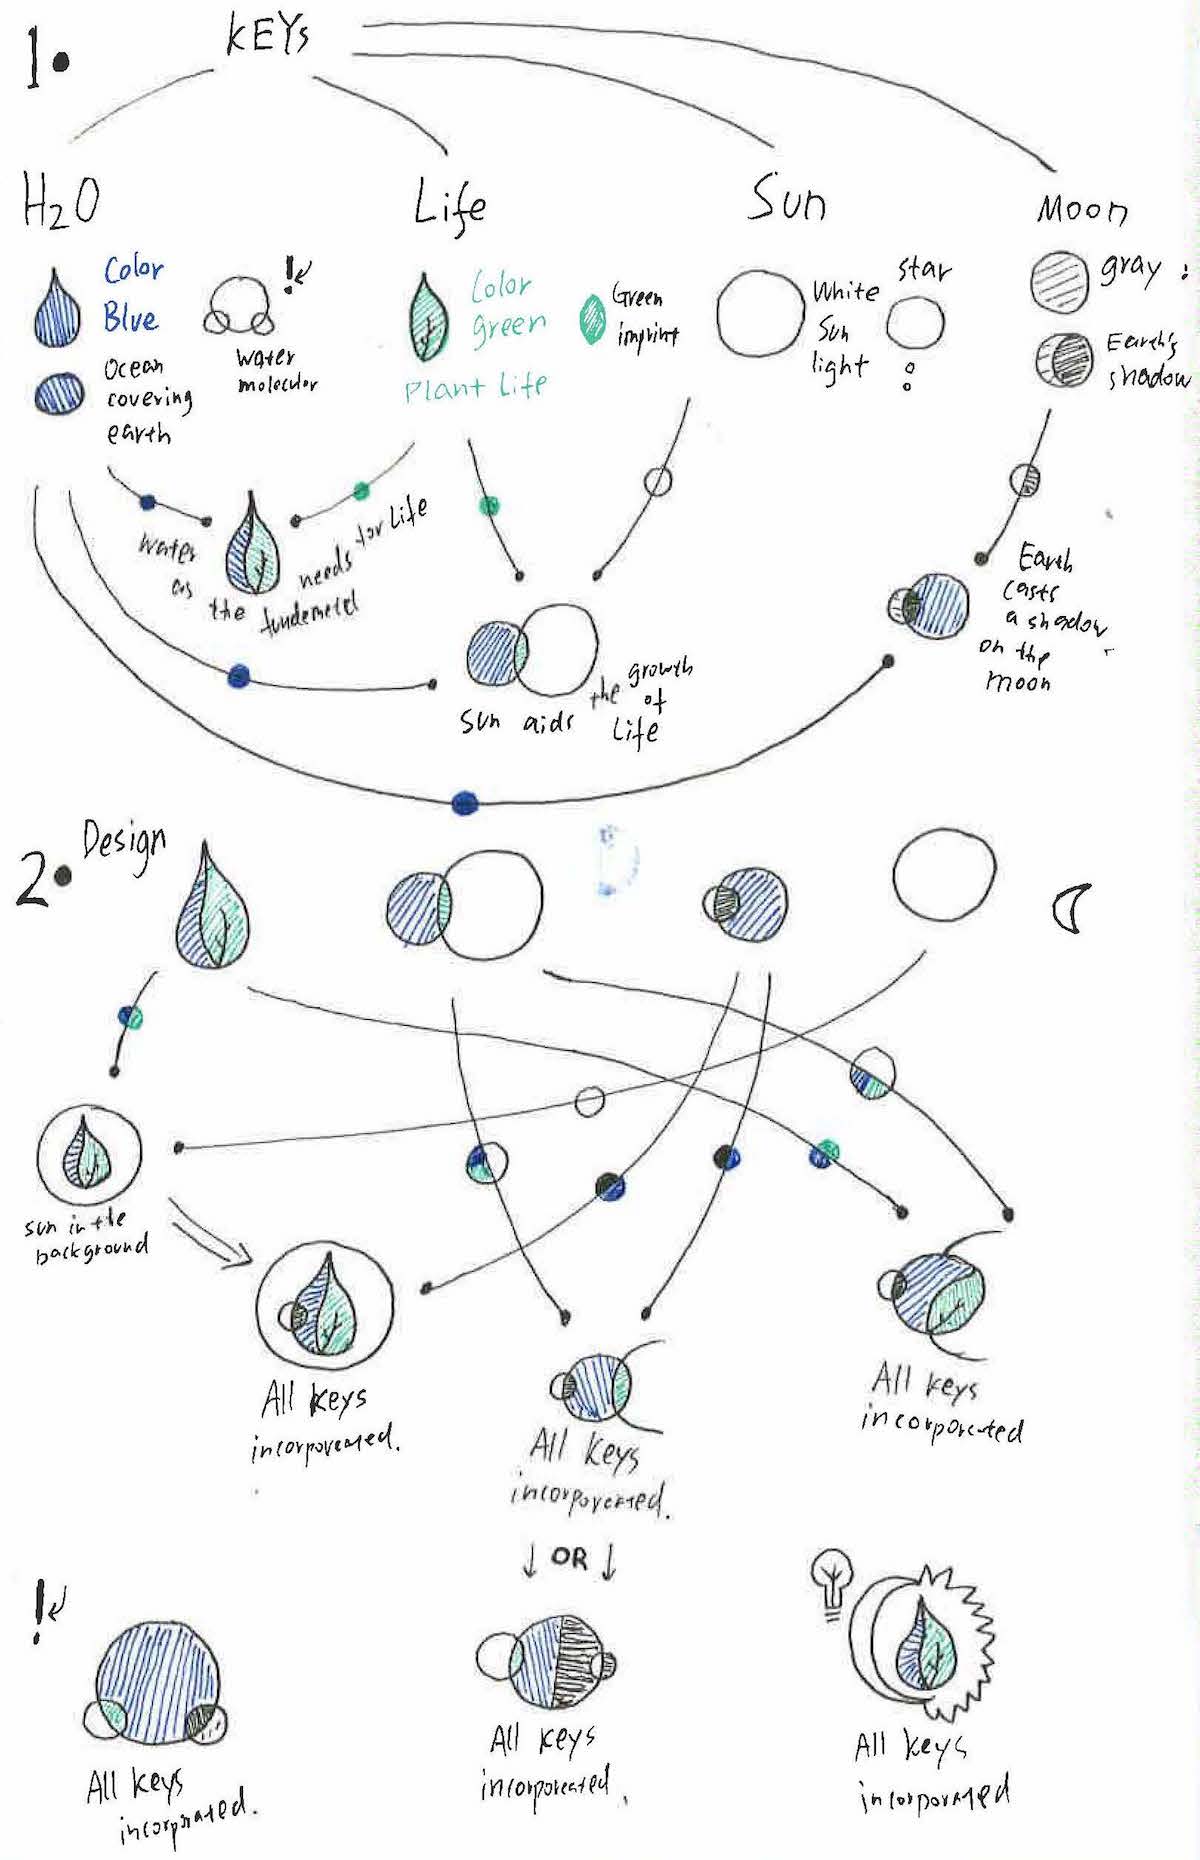 1.
KEYs
H2O
Life
Sun
Moon
Color
Blue
Ocean
covering
earth
!
water
molecular
Color
green
Plant Life
Green
imprint
White
Sun
light
star
gray :
Earth's
shadow
water
as
the fundemetel
needs
for Life
Sun aids
the growth
of
Life
Earth
casts
a shadow
on the
moon
2.
Design
sun in the
background
All keys
incorporeated.
All keys
incorporeated.
All keys
incorporcted
↓ OR ↓
!
All keys
incorprated.
All keys
incorporeated.
All keys
incorporated